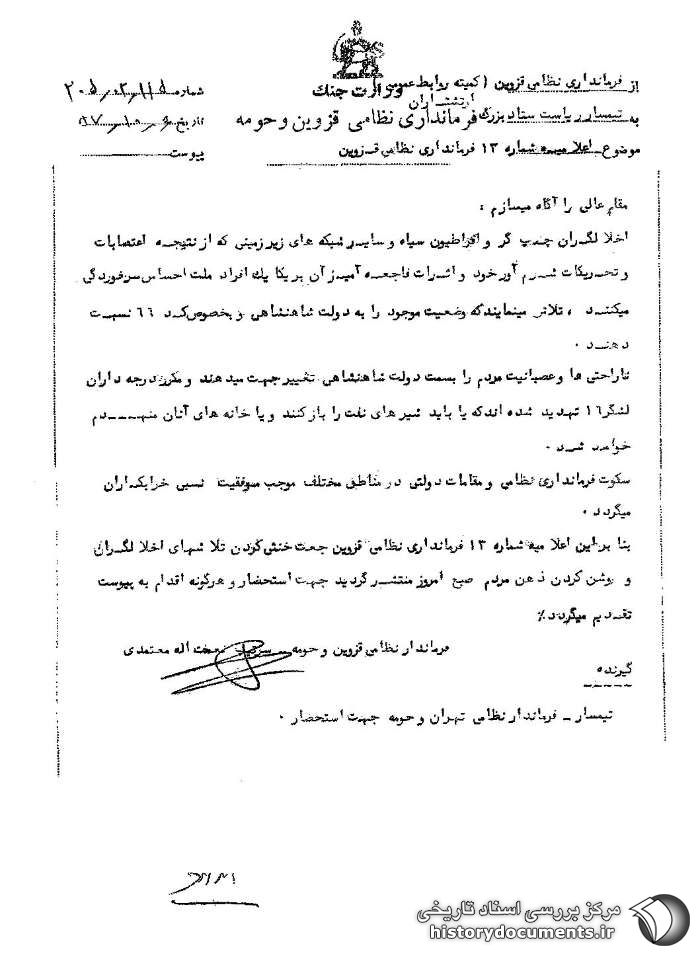 وزارت جنگ
فرمانداری نظامی قزوین و حومه
از فرمانداری نظامی قزوین ( کمیته روابط عمومی
به تیمسار ریاست ستاد بزرگ ارتشتاران
موضوع اعلامیه شماره ۱۳ فرمانداری نظامی قزوین
شماره
تاریخ
پیوست
مقام عالی را آگاه میسازم :
اخلالگران چپ گر و افراطیون سیاه و سایر شبکه های زیرزمینی که از نتیجه اعتصابات
و تحریکات شرم آور خود و اثرات فاجعه آمیز آن بر یکایک افراد ملت احساس سرخوردگی
میکنند ، تلاش مینمایند که وضعیت موجود را به دولت شاهنشاهی و بخصوص لشگر ۱۶ نسبت
دهند .
ناراحتی ها و عصبانیت مردم را بسمت دولت شاهنشاهی تغییر جهت میدهند و مکرر درجه داران
لشگر ۱۶ تهدید شده اند که یا باید شیرهای نفت را باز کنند و یا خانه های آنان منهدم
خواهد شد .
سکوت فرمانداری نظامی و مقامات دولتی در مناطق مختلف موجب موفقیت نسبی خرابکاران
میگردد .
بنا براین اعلامیه شماره ۱۳ فرمانداری نظامی قزوین جهت خنثی کردن تلاشهای اخلالگران
و روشن کردن ذهن مردم صبح امروز منتشر گردید جهت استحضار و هرگونه اقدام به پیوست
تقدیم میگردد٪
فرماندار نظامی قزوین و حومه - سرتیپ نعمت اله معتمدی
گیرنده
تیمسار - فرماندار نظامی تهران و حومه جهت استحضار .
مرکز بررسی اسناد تاریخی
historydocuments.ir